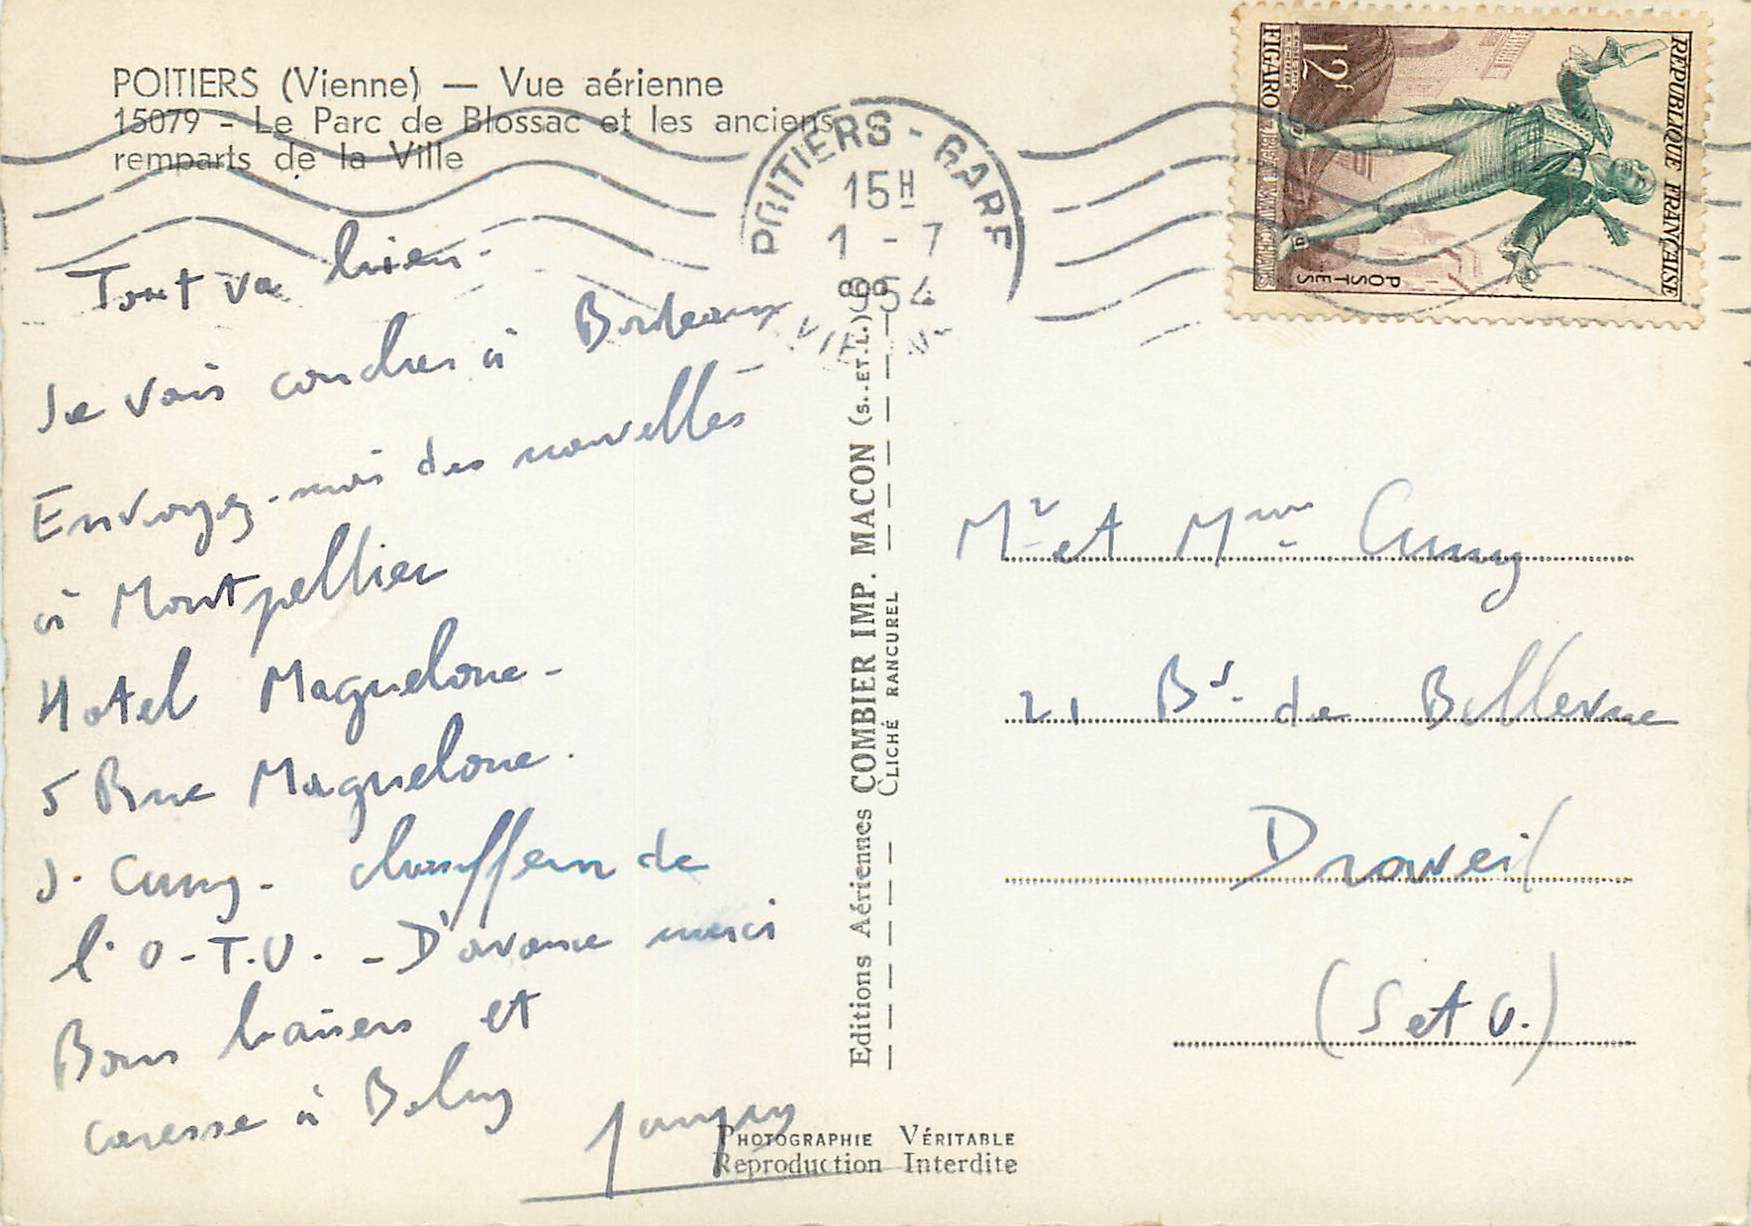 POITIERS (Vienne) — Vue aérienne
15079 - Le Parc de Blossac et les anciens
remparts de la Ville
Tout va bien -
Je vais coucher à Bordeaux
Envoyez-moi des nouvelles
à Montpellier
Hotel Maguelone -
5 Rue Maguelone.
J. Cuny - chauffeur de
l'O.T.U. - D'avance merci
Bons baisers et
caresse à
POITIERS - GARE
15H
1 - 7
1954
VIENNE
12f
FIGARO
POSTES
REPUBLIQUE FRANÇAISE
Editions Aériennes COMBIER IMP. MACON (S.-ET-L.)
CLICHÉ RANCUREL
Mr et Mme Cuny
21 Bd. de Bellevue
Draveil
(S et O.)
PHOTOGRAPHIE VÉRITABLE
Reproduction Interdite